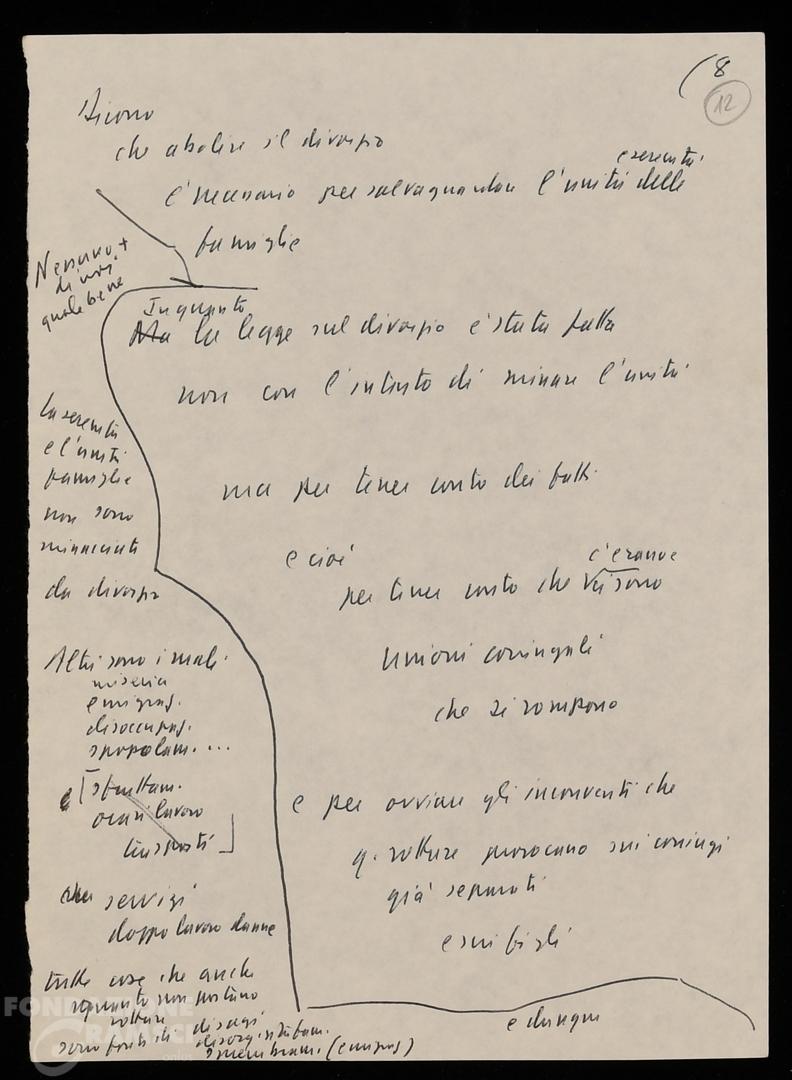 (8
12
Dicono
che abolire il divorzio
e serenità
è necessario per salvaguardare l'unità delle
famiglie
Nessuno +
di noi
quale bene
In quanto
Ma la legge sul divorzio è stata fatta
non con l'intento di minare l'unità
ma per tener conto dei fatti
e cioè
c'erano e
per tener conto che vi sono
unioni coniugali
che si rompono
e per ovviare gli inconvenienti che
q. rotture provocano sui coniugi
già separati
e sui figli
e dunque
la serenità
e l'unità
famiglie
non sono
minacciati
da divorzio
Altri sono i mali
miseria
emigraz.
disoccupaz.
spopolam. ...
e [sfruttam.
orari lavoro
trasporti]
servizi
doppo lavoro donne
tutte cose che anche
quanto non portano
rotture
sono fonti di disagi
disorg.
smembram. (emigraz)
FONDAZIONE
GRAMSCI
onlus